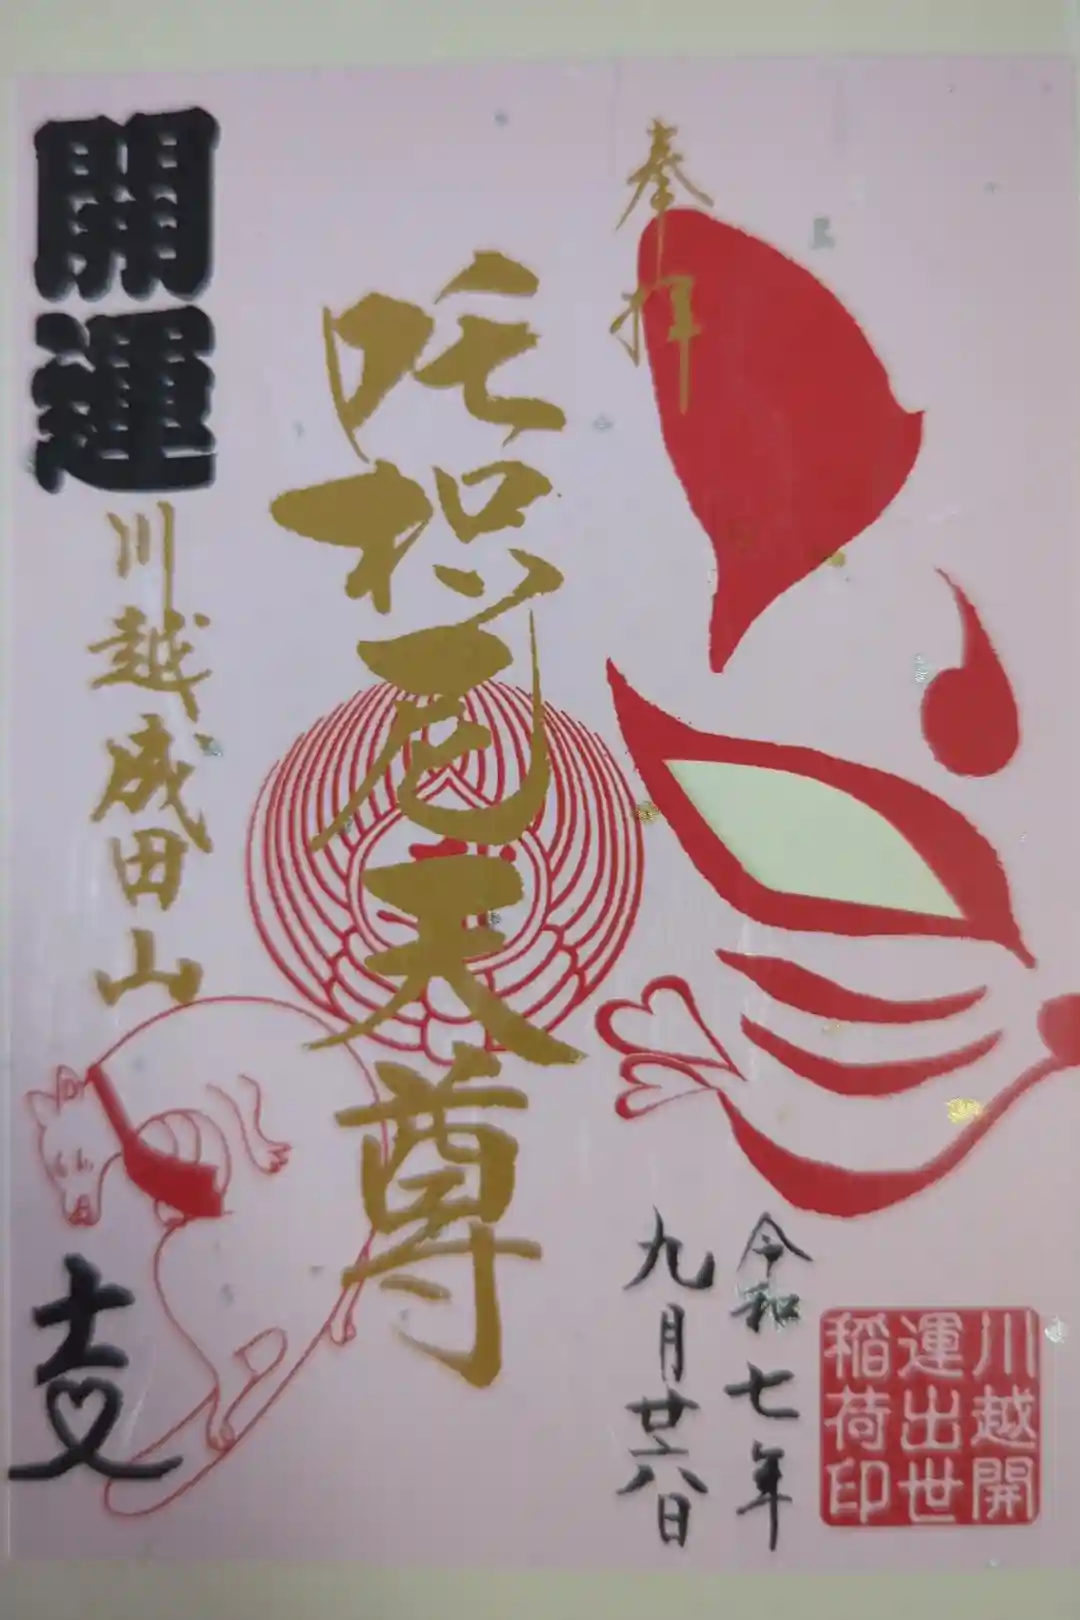 奉拝
令和七年
九月廿六日
吒枳尼天尊
開運
川越成田山
吉
川越開
運出世
稲荷印